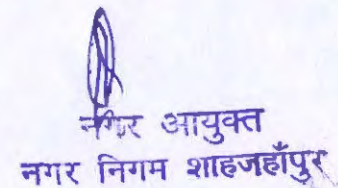 नगर आयुक्त
नगर निगम शाहजहाँपुर